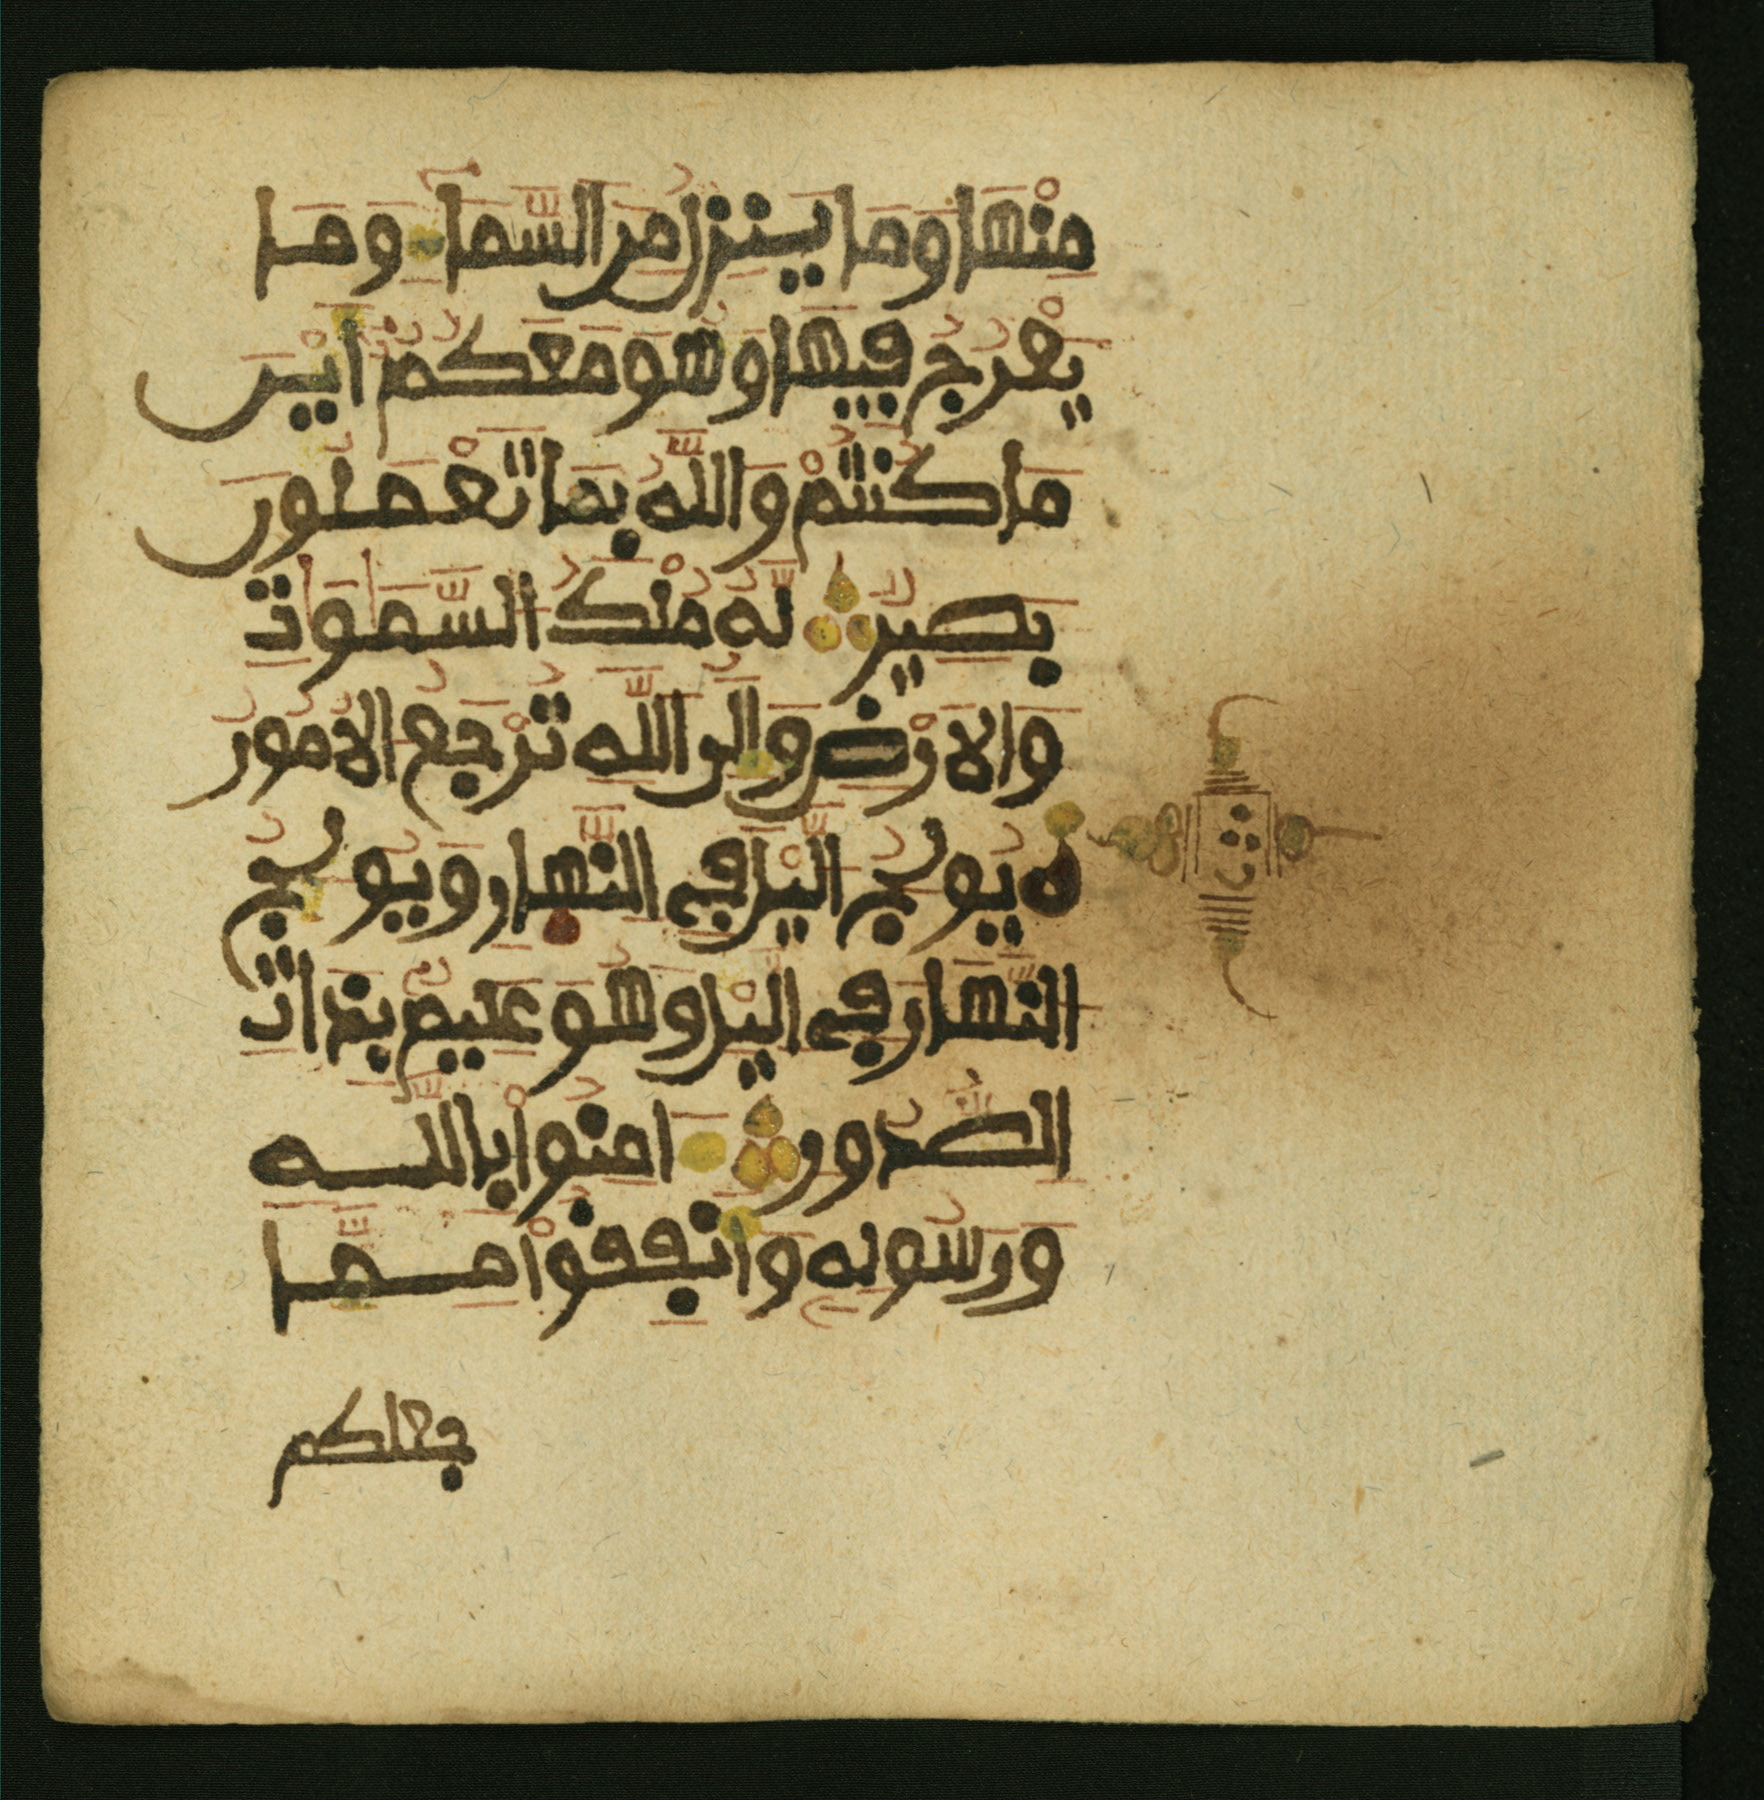 مِنْهَا وَمَا يَنزِلُ مِنَ السَّمَآءِ وَمَا
يَعْرُجُ فِيهَا وَهُوَ مَعَكُمُ أَيْنَ
مَا كُنتُمْ وَاللَّهُ بِمَا تَعْمَلُونَ
بَصِيرٌ لَّهُ مُلْكُ السَّمَٰوَٰتِ
وَالَارْضِ وَإِلَى اللَّهِ تُرْجَعُ الُامُورُ
ه يُولِجُ الَّيْلَ فِي النَّهَارِ وَيُولِجُ
النَّهَارَ فِي الَّيْلِ وَهُوَ عَلِيمٌ بِذَاتِ
الصُّدُورِ ءَامِنُوا بِاللَّهِ
وَرَسُولِهِ وَأَنفِقُوا مِمَّا
جعلكم